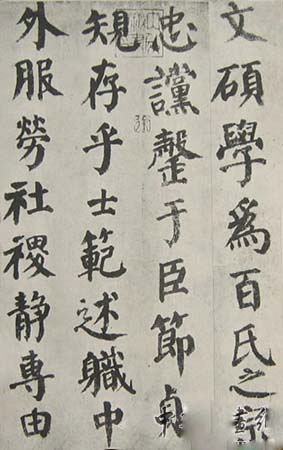 文碩學爲百氏之
忠讜罄于臣節貞
規存乎士範述職中
外服勞社稷静專由